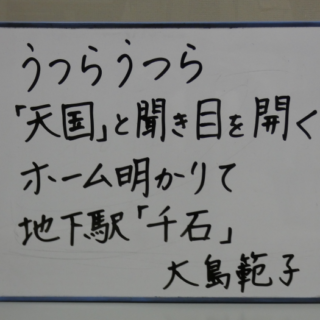 うつらうつら
「天国」と聞き目を開く
ホーム明かりて
地下駅「千石」
大島範子